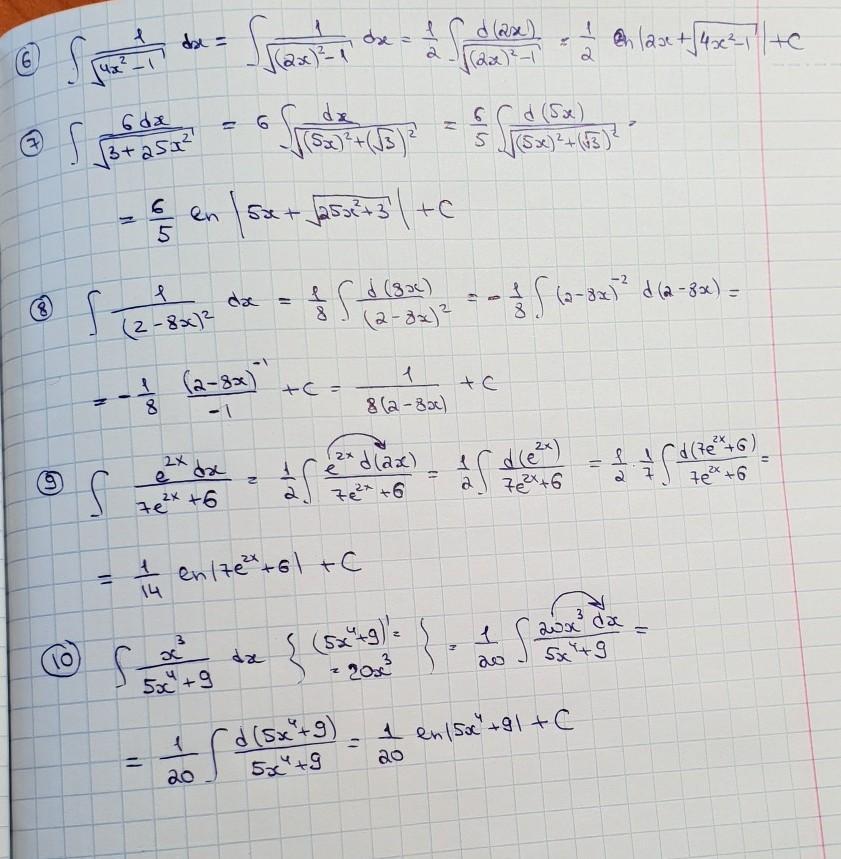 ⑥ ∫ 1/√(4x²-1) dx = ∫ 1/√((2x)²-1) dx = 1/2 ∫ d(2x)/√((2x)²-1) = 1/2 ln|2x+√(4x²-1)|+C
⑦ ∫ 6dx/√(3+25x²) = 6 ∫ dx/√((5x)²+(√3)²) = 6/5 ∫ d(5x)/√((5x)²+(√3)²) =
= 6/5 ln|5x+√(25x²+3)|+C
⑧ ∫ 1/(2-8x)² dx = 1/8 ∫ d(8x)/(2-8x)² = -1/8 ∫ (2-8x)⁻² d(2-8x) =
= -1/8 (2-8x)⁻¹/-1 +C = 1/8(2-8x) +C
⑨ ∫ e²ˣ dx/7e²ˣ+6 = 1/2 ∫ e²ˣ d(2x)/7e²ˣ+6 = 1/2 ∫ d(e²ˣ)/7e²ˣ+6 = 1/2 · 1/7 ∫ d(7e²ˣ+6)/7e²ˣ+6 =
= 1/14 ln|7e²ˣ+6| +C
⑩ ∫ x³/5x⁴+9 dx { (5x⁴+9)' = = 20x³ } = 1/20 ∫ 20x³ dx/5x⁴+9 =
= 1/20 ∫ d(5x⁴+9)/5x⁴+9 = 1/20 ln|5x⁴+9| +C